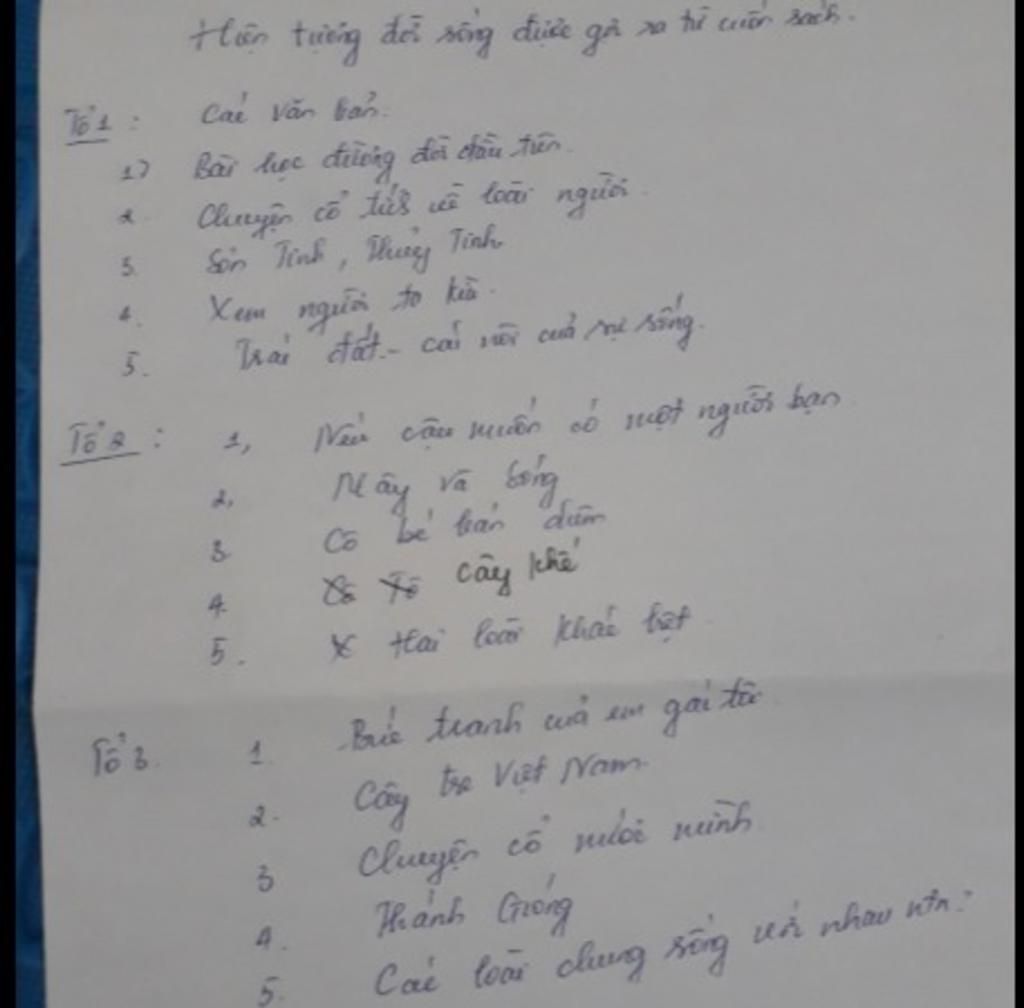 Hiện tượng đời sống được gợi ra từ cuốn sách.
Tổ 1 : Các văn bản.
1) Bài học đường đời đầu tiên.
2. Chuyện cổ tích về loài người.
3. Sơn Tinh, Thuỷ Tinh
4. Xem người ta kìa.
5. Trái đất - cái nôi của sự sống.
Tổ 2 : 1, Nếu cậu muốn có một người bạn
2, Mây và sóng
3. Cô bé bán diêm
4. Cô Tô cây khế
5. X Hai loại khác biệt
Tổ 3. 1. Bức tranh của em gái tôi
2. Cây tre Việt Nam.
3 Chuyện cổ nước mình
4. Thánh Gióng
5. Các loài chung sống với nhau ntn?